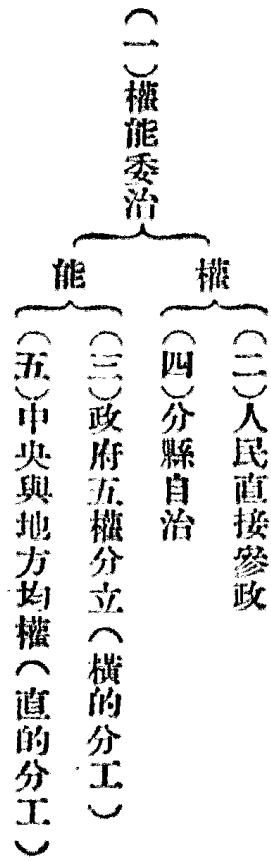 (一)權能委治
權
(二)人民直接參政
(四)分縣自治
能
(三)政府五權分立(橫的分工)
(五)中央與地方均權(直的分工)